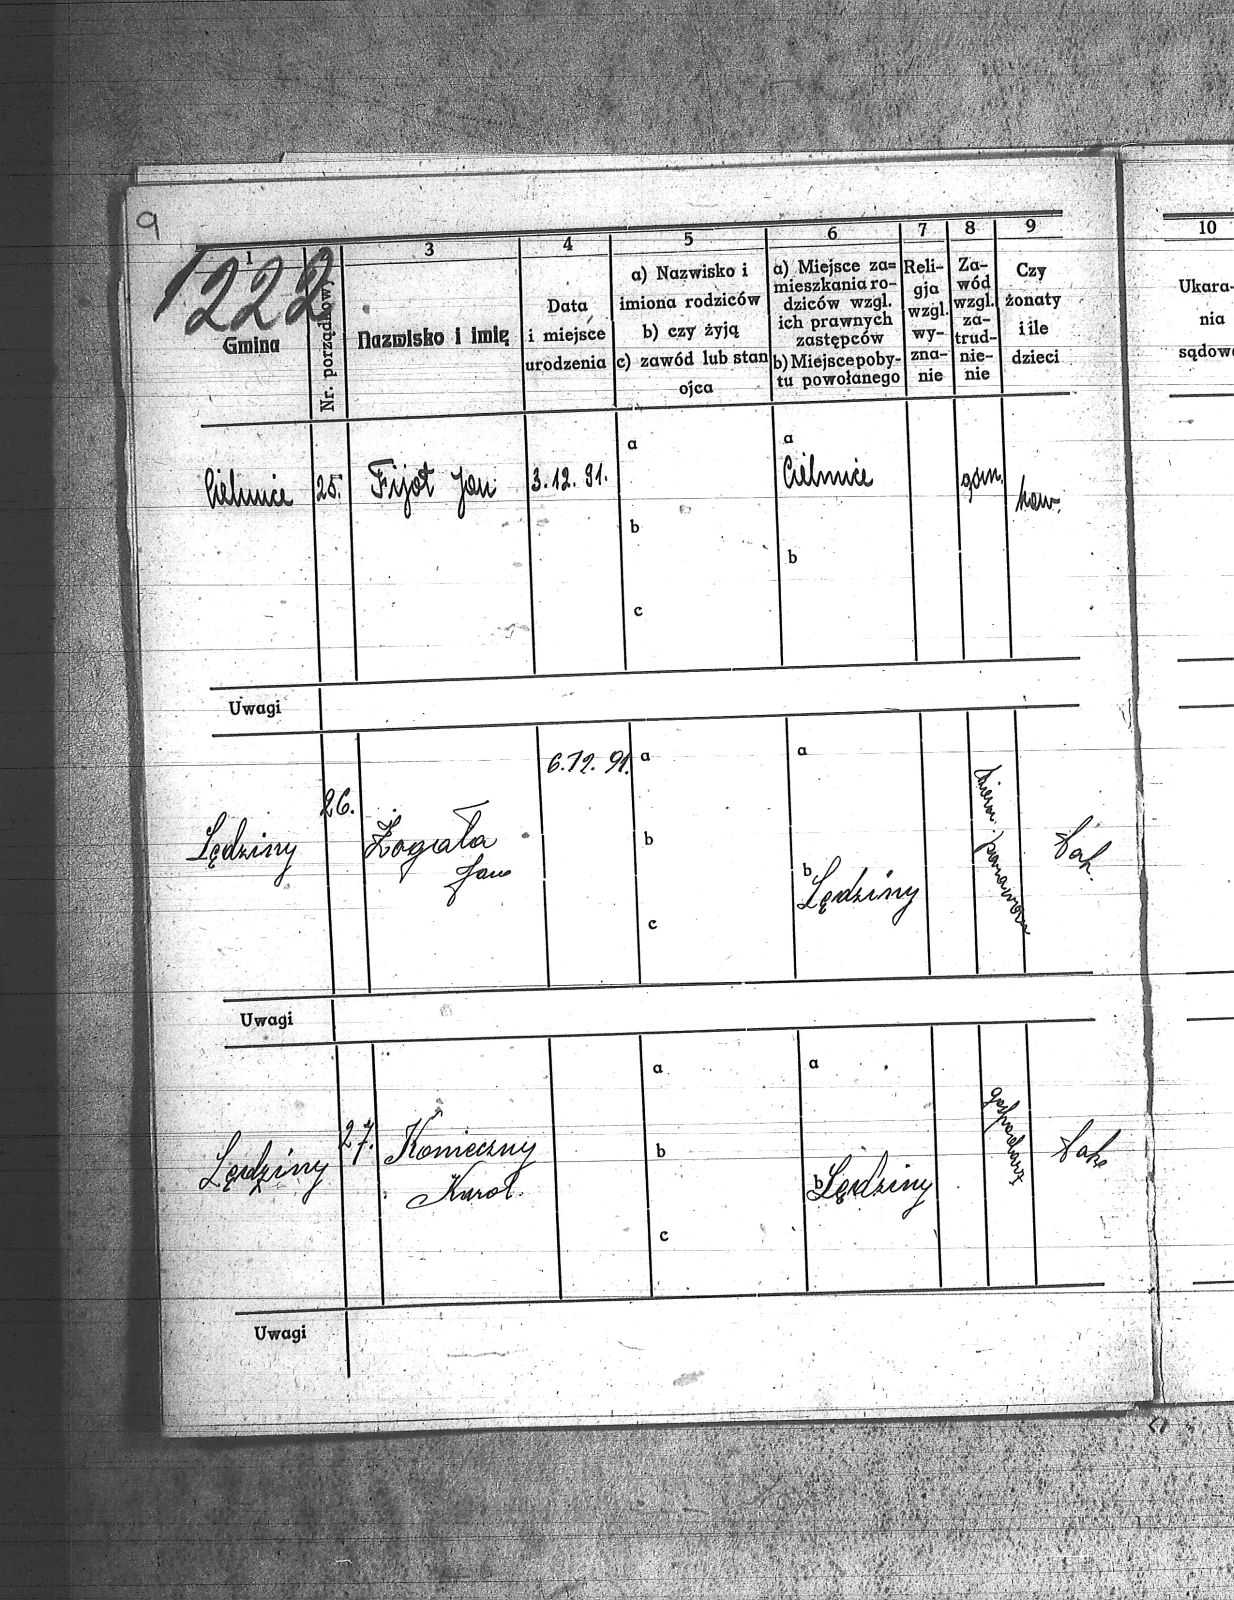 9
1222
1
3
4
5
6
7
8
9
10
Gmina
Nr. porządkowy
Nazwisko i imię
Data
i miejsce
urodzenia
a) Nazwisko i
imiona rodziców
b) czy żyją
c) zawód lub stan
ojca
a) Miejsce za=
mieszkania ro-
dziców wzgl.
ich prawnych
zastępców
b) Miejsce poby-
tu powołanego
Reli-
gja
wzgl.
wy-
zna-
nie
Za-
wód
wzgl.
za-
trud-
nie-
nie
Czy
żonaty
i ile
dzieci
Ukara-
nia
sądowe
Cielmice 25. Fijoł Jan 3.12.91.
a
Cielmice
b
a
b
c
górn.
kaw.
Uwagi
Lędziny 26. Żogała
Jan
6.12.91.
a
b
c
a
b Lędziny
tak.
Uwagi
Lędziny 27. Konieczny
Karol
a
b
c
a
b Lędziny
gospodarz
tak
Uwagi